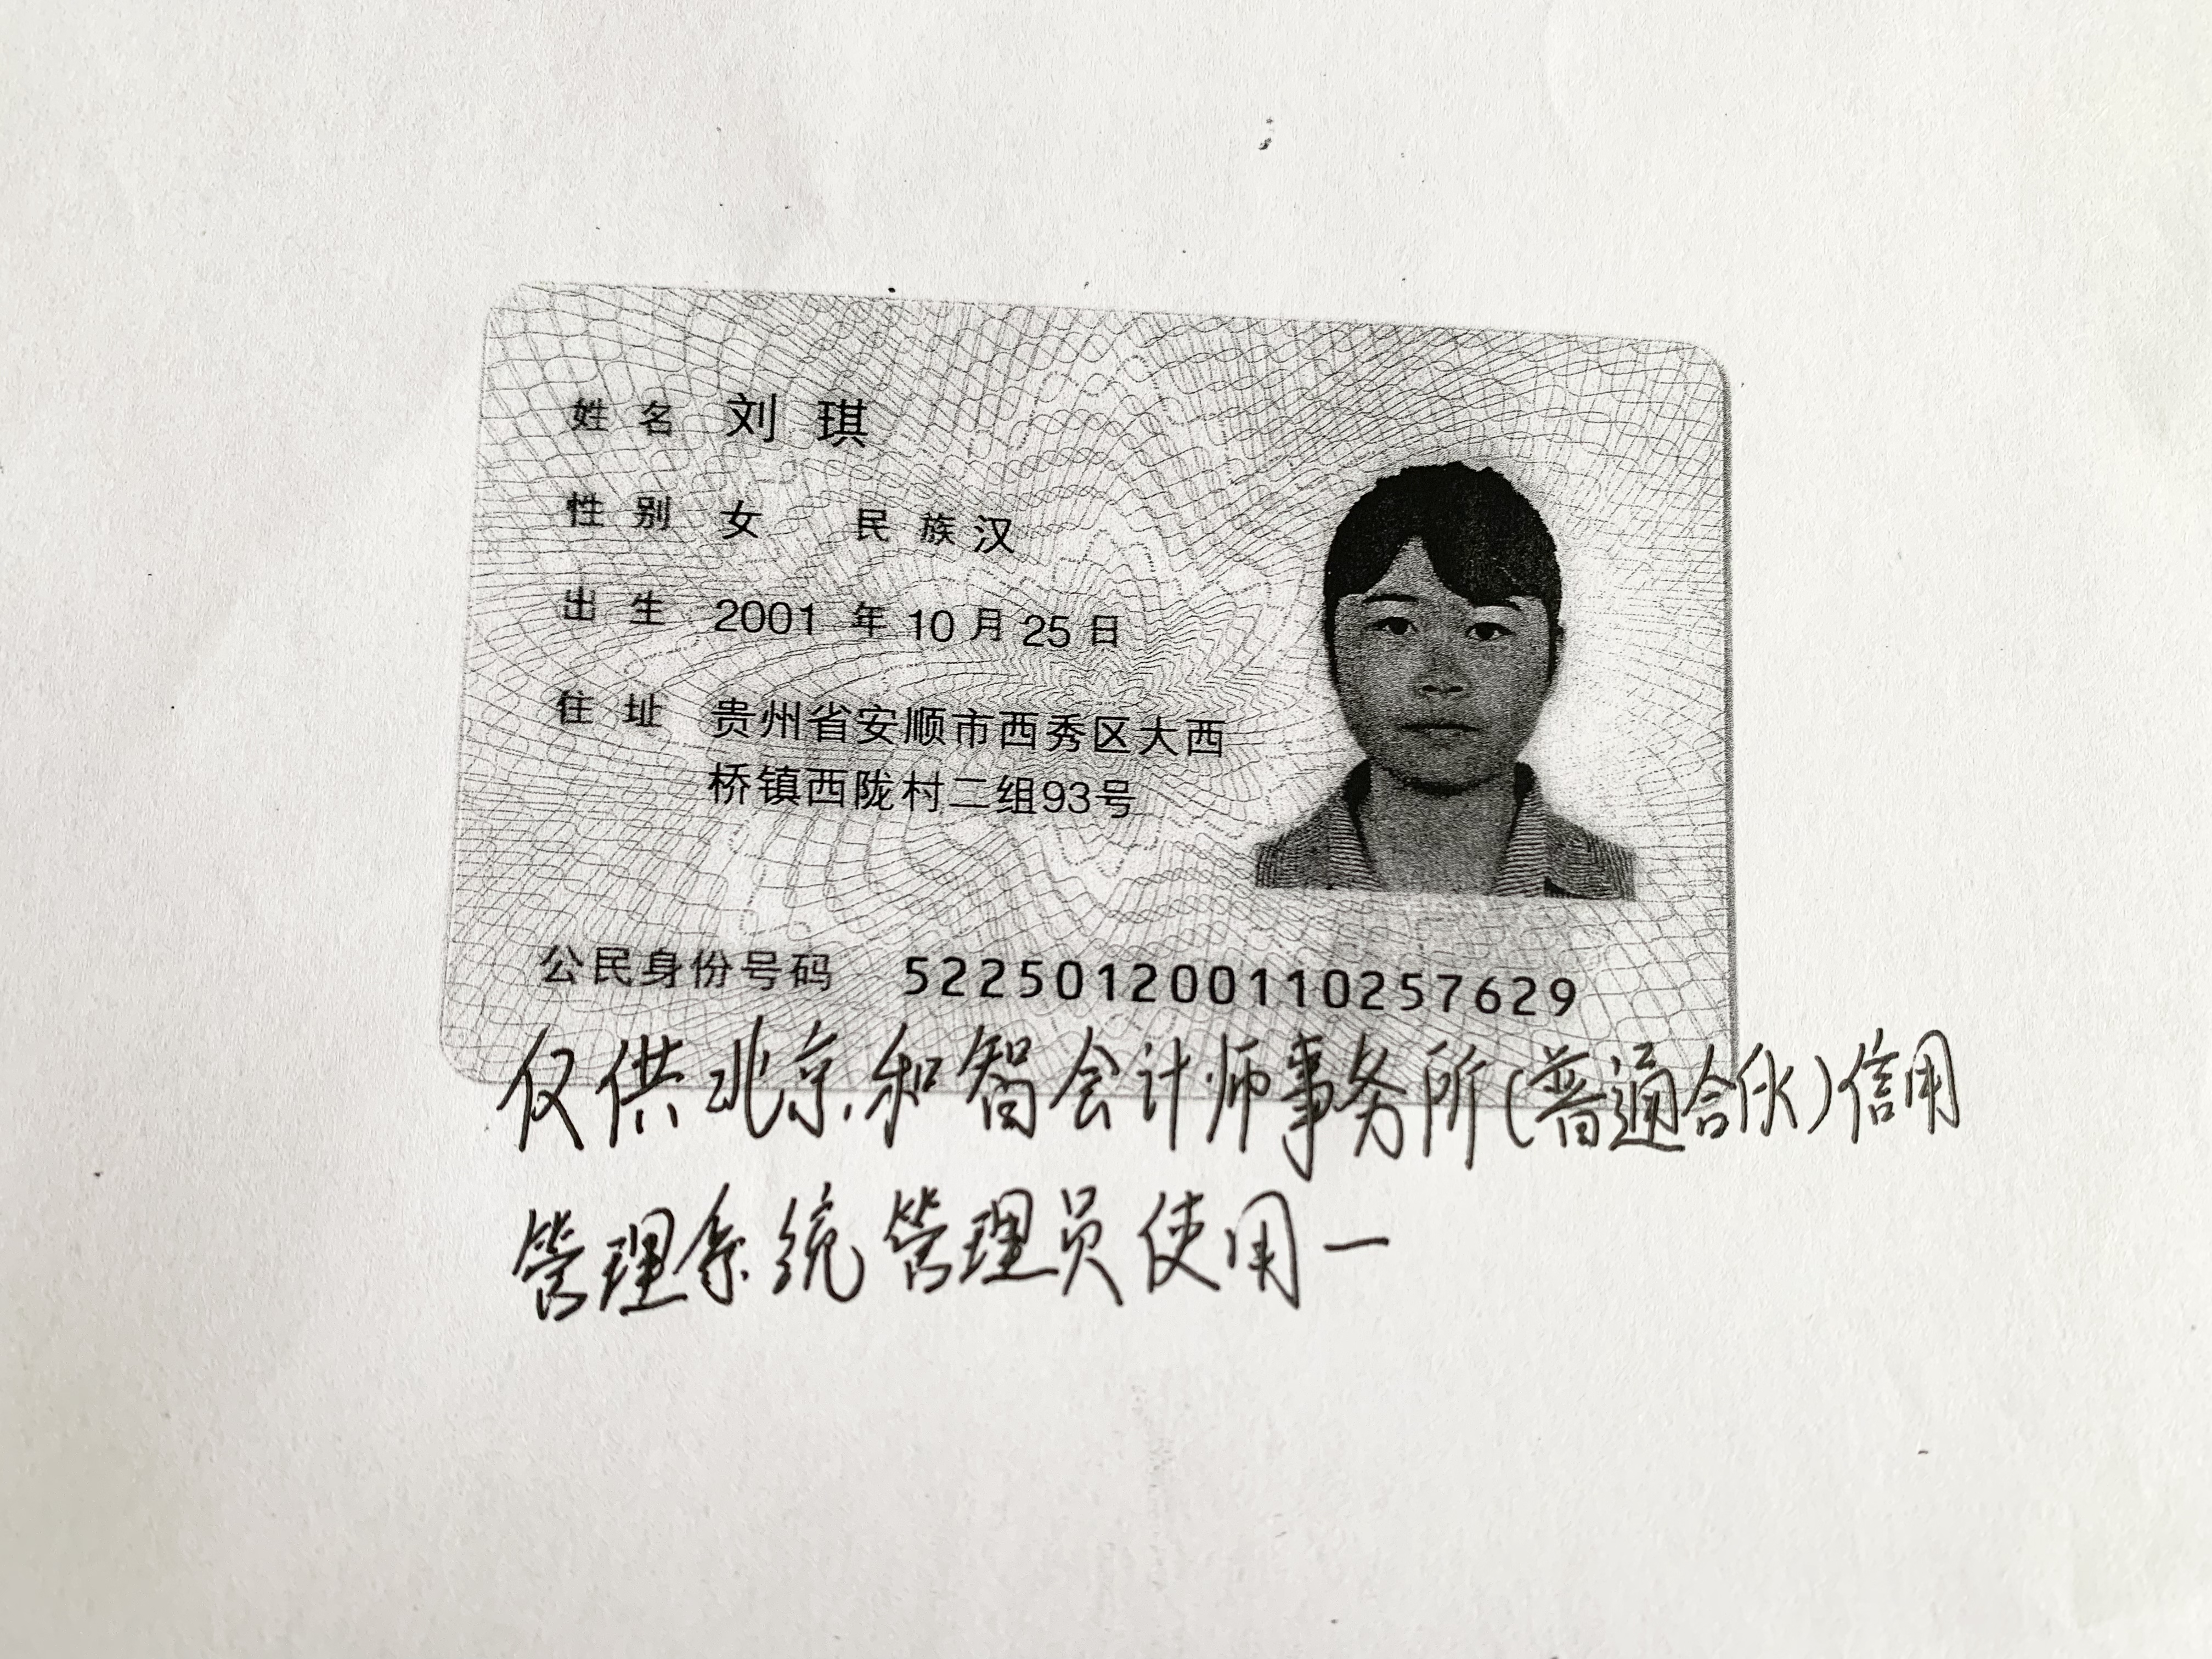 姓名 刘琪
性别 女 民族 汉
出生 2001 年 10 月 25 日
住址 贵州省安顺市西秀区大西
桥镇西陇村二组93号
公民身份号码 522501200110257629
仅供北京和智会计师事务所(普通合伙)信用
管理系统管理员使用一